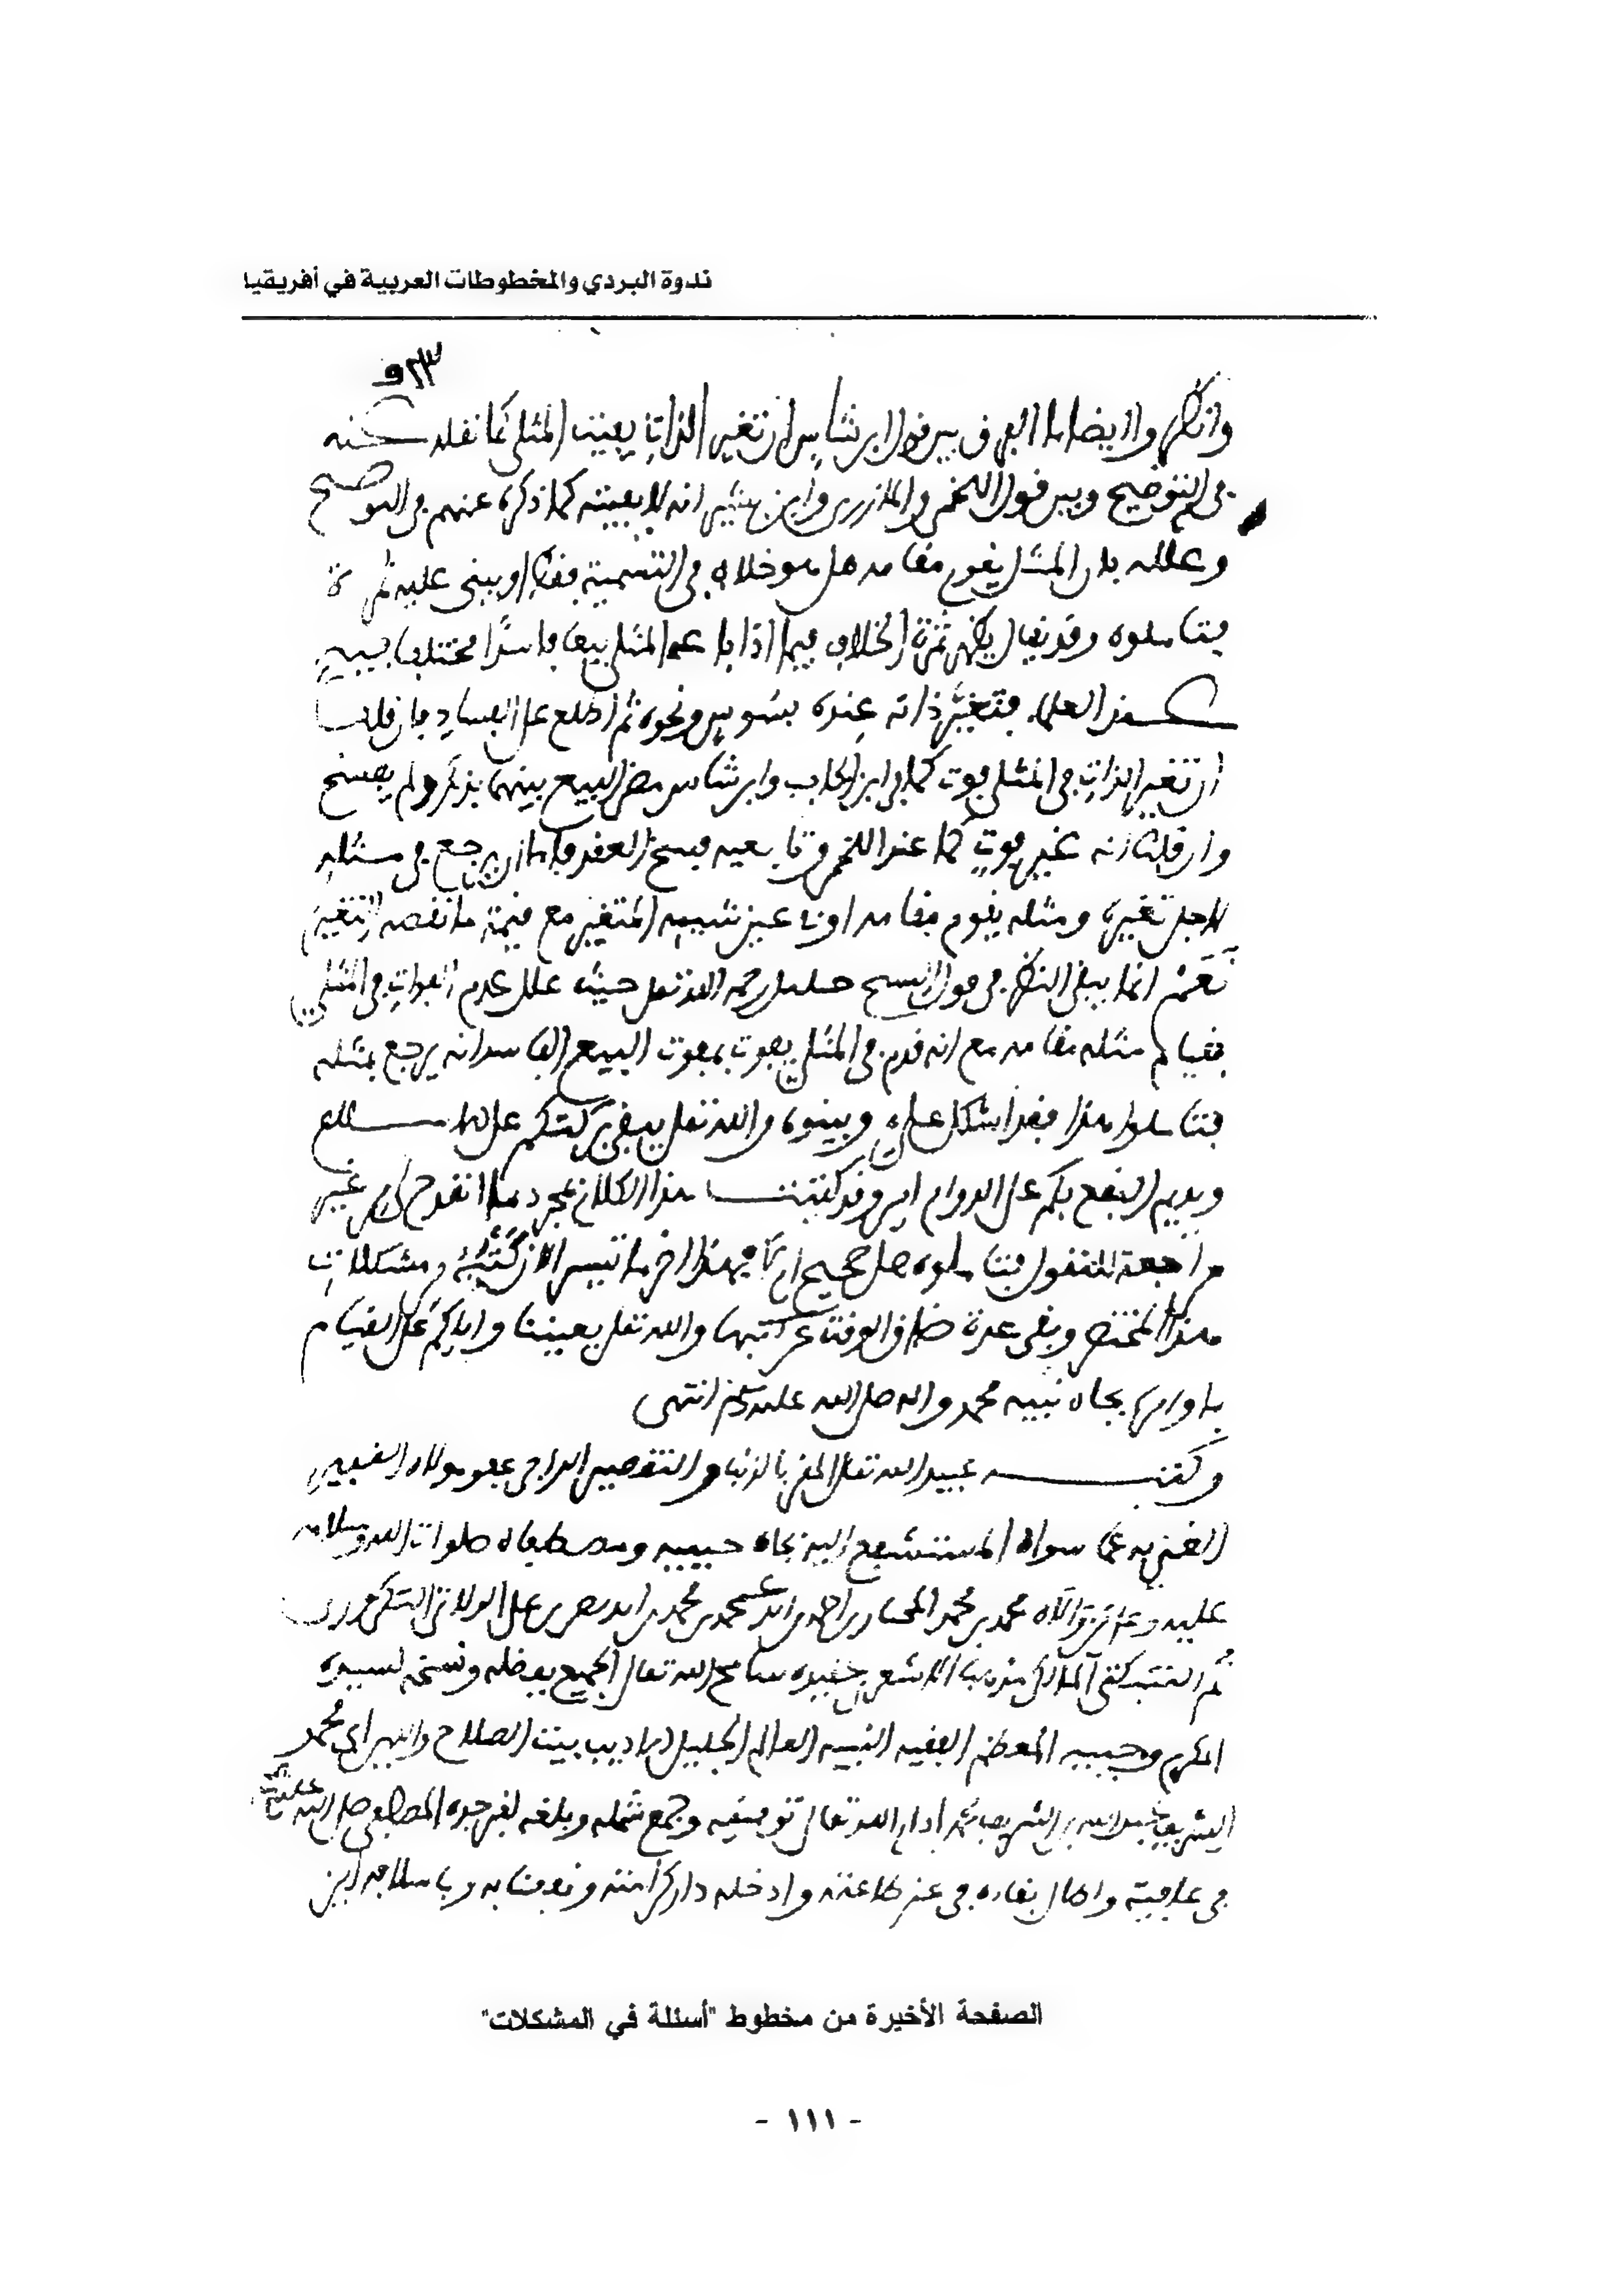 ندوة البردي والمخطوطات العربية في أفريقيا
٢٣و
وانظروا ايضا ما الفرق بين قول ابن شاس ان تغير الذات يفيت المثلي كما نقله عنه
في التوضيح وبين قول اللخمي والمازري وابن بشير انه لا يفيته كما ذكره عنهم في التوضيح
وعلله بان المثل يقوم مقامه هل هو خلاف في التسمية فقط او يبنى عليه ثمرة
فتاملوه وقد يقال يظهر ثمرة الخلاف فيما اذا باع المثلي بيعا فاسدا مختلفا فيه
عند العلماء فتغير ذاته عنده بسوس ونحوه ثم اطلع على الفساد فان قلنا
ان تغير الذات في المثلي فوت كما لابن الحاجب وابن شاس مضى البيع بينهما بذلك ولم يفسخ
وان قلنا انه غير فوت كما عند اللخمي وتابعيه فسخ العقد فاما ان يرجع في مثله
لاجل تغيره ومثله يقوم مقامه او في عين شيئه المتغير مع قيمة ما نقصه التغير
نعم انما يبقى النظر في قول الشيخ خليل رحمه الله تعلى حيث علل عدم الفوات في المثلي
بقيام مثله مقامه مع انه قدم في المثلي يفوت بمفوت البيع الفاسد انه يرجع بمثله
فتاملوا هذا فقد اشكل علي وبينوه والله تعلى يبقي بركتكم على الاسلام
ويديم النفع بكم على الدوام امين وقد كتبت هذا الكلام بمجرد ما انقدح لي من غير
مراجعة للمنقول فتاملوه هل صحيح ام لا فهذا اخر ما تيسر الان كتبه من مشكلات
هذا المختصر وبقي عدة ضاق الوقت عن كتبها والله تعلى يعيننا واياكم على القيام
باوامره بجاه نبيه محمد واله صلى الله عليه وسلم انتهى
وكتب عبيد الله تعلى المقر بالذنب والتقصير الراجي عفو مولاه الفقير
الغني به عما سواه المستشفع اليه بجاه حبيبه ومصطفاه صلوات الله وسلامه
عليه وعلى من والاه محمد بن محمد المختار بن احمد بن محمد بن علي الولاتي التكروري
ثم التنبكتي المالكي مذهبا الاشعري عقيدة سامح الله تعالى الجميع بفضله ونسخه لسيده
المكرم وحبيبه المعظم الفقيه النبيه العالم الجليل الاديب بيت الصلاح والدين ابي محمد
الشريف عبد الله بن الشريف ادام الله تعالى توفيقه وجمع شمله وبلغه لقبر جده المصطفى صلى الله عليه وسلم
في عافية واطال بقاءه في عز طاعته وادخله دار كرامته ونفعنا به وباسلافه امين
الصفحة الأخيرة من مخطوط "أسئلة في المشكلات"
- ١١١ -